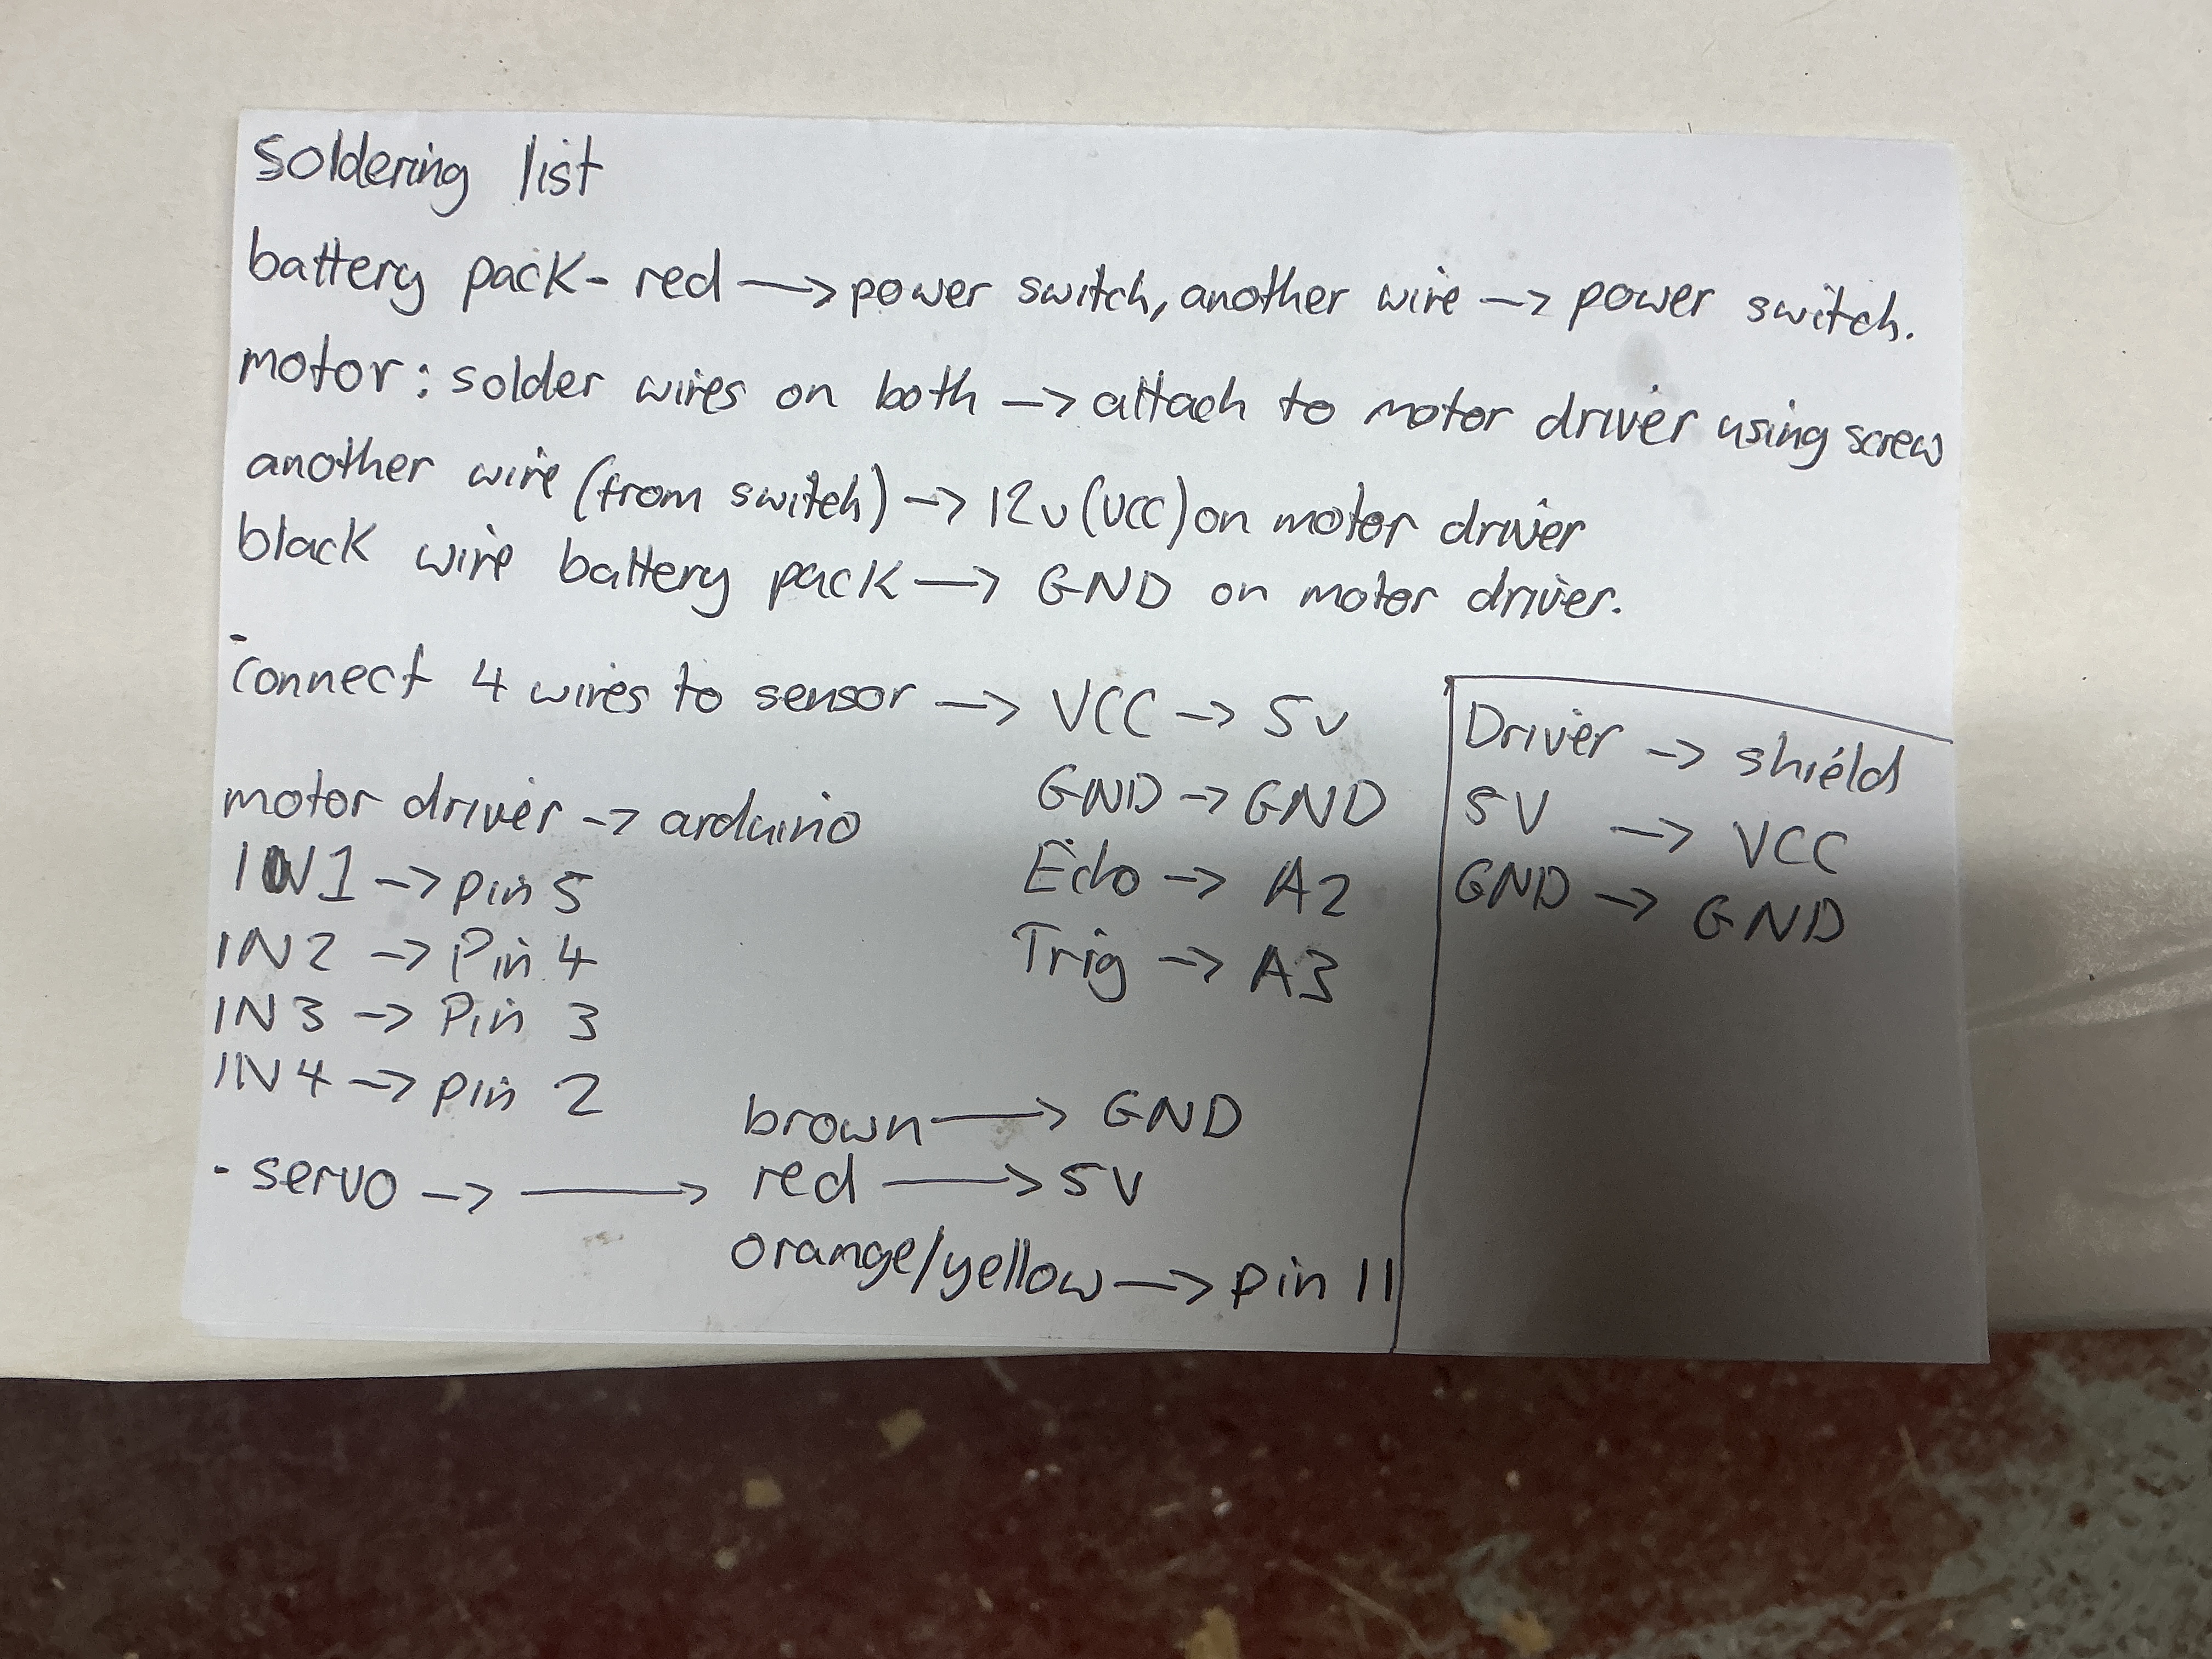 soldering list
battery pack - red → power switch, another wire → power switch.
motor: solder wires on both → attach to motor driver using screw
another wire (from switch) → 12v (VCC) on motor driver
black wire battery pack → GND on motor driver.
- connect 4 wires to sensor → VCC → 5v
GND → GND
Echo → A2
Trig → A3
Driver → shield
5V → VCC
GND → GND
motor driver → arduino
IN1 → pin 5
IN2 → Pin 4
IN3 → Pin 3
IN4 → pin 2
- servo → → brown → GND
red → 5V
orange/yellow → pin 11